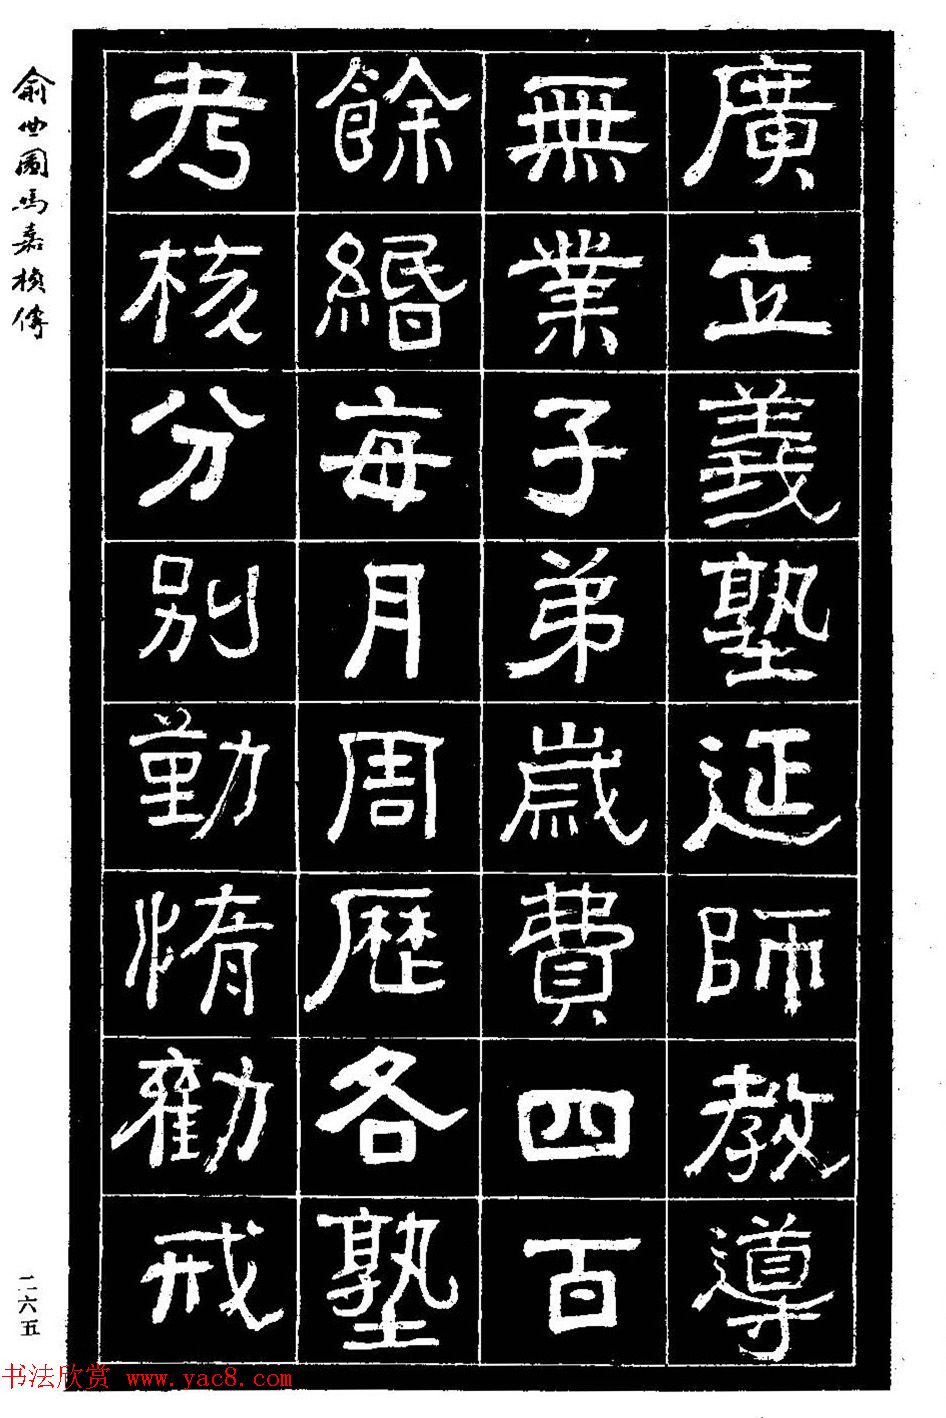 廣立義塾延師教導
無業子弟歲費四百
餘緡每月周歷各塾
考核分別勤惰勸戒
俞曲園馮嘉楨傳
二六五
书法欣赏 www.yac8.com